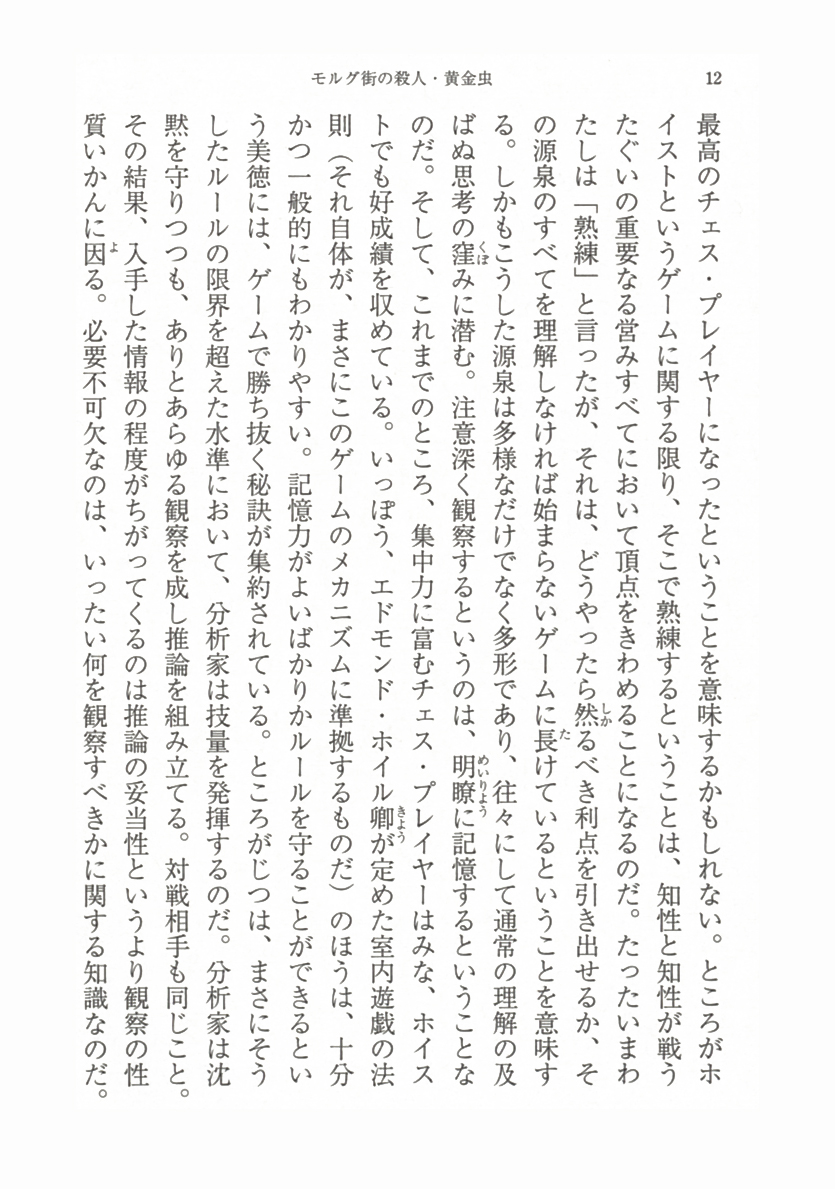 モルグ街の殺人・黄金虫
12
最高のチェス・プレイヤーになったということを意味するかもしれない。ところがホ
イストというゲームに関する限り、そこで熟練するということは、知性と知性が戦う
たぐいの重要なる営みすべてにおいて頂点をきわめることになるのだ。たったいまわ
たしは「熟練」と言ったが、それは、どうやったら然るべき利点を引き出せるか、そ
の源泉のすべてを理解しなければ始まらないゲームに長けているということを意味す
る。しかもこうした源泉は多様なだけでなく多形であり、往々にして通常の理解の及
ばぬ思考の窪みに潜む。注意深く観察するというのは、明瞭に記憶するということな
のだ。そして、これまでのところ、集中力に富むチェス・プレイヤーはみな、ホイス
トでも好成績を収めている。いっぽう、エドモンド・ホイル卿が定めた室内遊戯の法
則（それ自体が、まさにこのゲームのメカニズムに準拠するものだ）のほうは、十分
かつ一般的にもわかりやすい。記憶力がよいばかりかルールを守ることができるとい
う美徳には、ゲームで勝ち抜く秘訣が集約されている。ところがじつは、まさにそう
したルールの限界を超えた水準において、分析家は技量を発揮するのだ。分析家は沈
黙を守りつつも、ありとあらゆる観察を成し推論を組み立てる。対戦相手も同じこと。
その結果、入手した情報の程度がちがってくるのは推論の妥当性というより観察の性
質いかんに因る。必要不可欠なのは、いったい何を観察すべきかに関する知識なのだ。